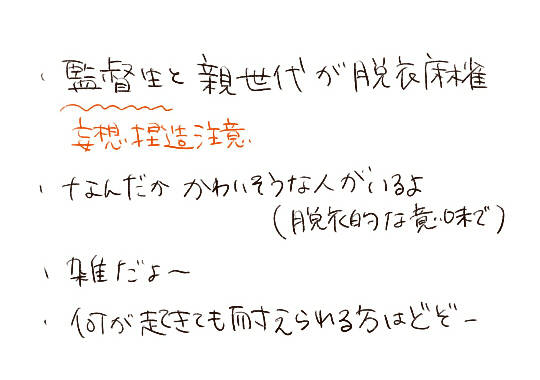 、監督生と親世代が脱衣麻雀
妄想捏造注意
、なんだか かわいそうな人がいるよ
(脱衣的な意味で)
、雑だよ〜
、何が起きても耐えられる方はどぞー